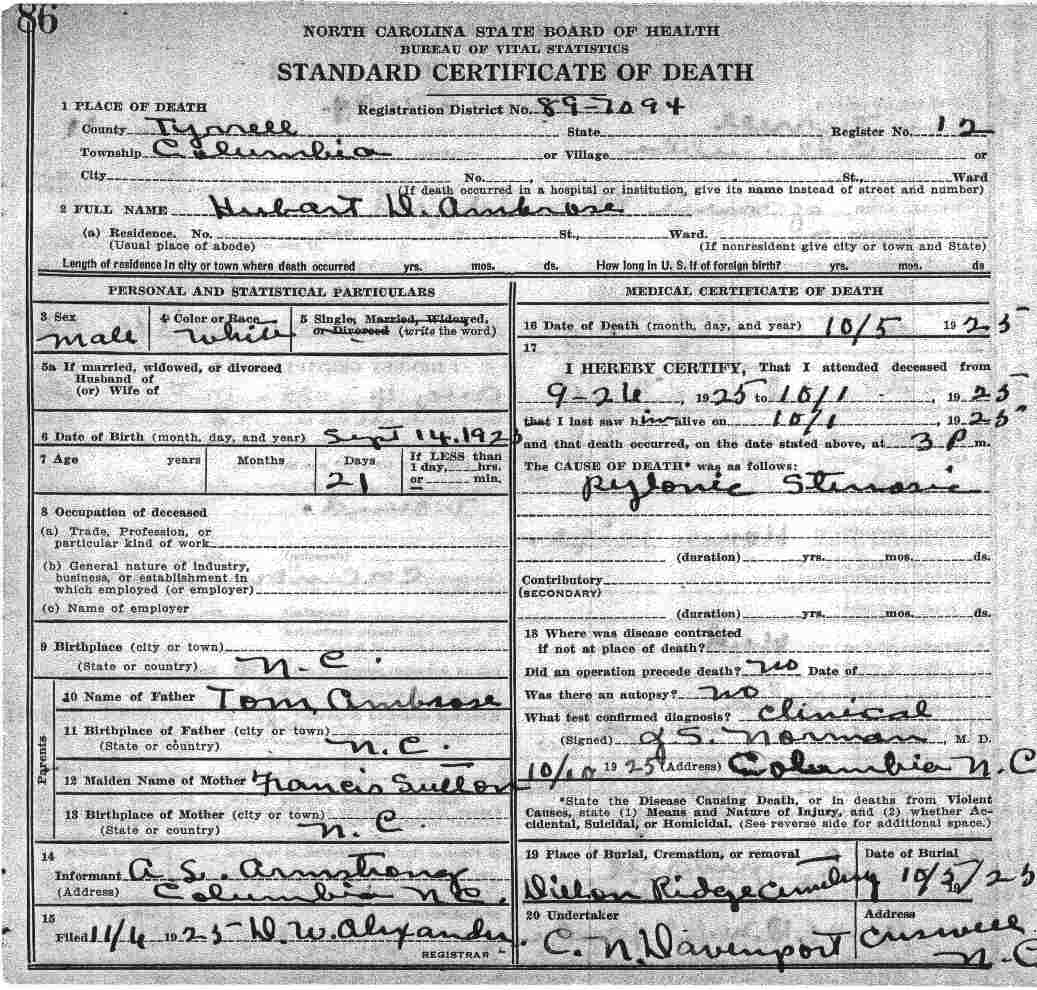 86
NORTH CAROLINA STATE BOARD OF HEALTH
BUREAU OF VITAL STATISTICS
STANDARD CERTIFICATE OF DEATH
1 PLACE OF DEATH Registration District No. 89-7094
County Tyrrell State Register No. 12
Township Columbia or Village or
City No. , St., Ward
(If death occurred in a hospital or institution, give its name instead of street and number)
2 FULL NAME Hubart D. Ambrose
(a) Residence. No. St., Ward.
(Usual place of abode) (If nonresident give city or town and State)
Length of residence in city or town where death occurred yrs. mos. ds. How long in U. S. if of foreign birth? yrs. mos. ds
PERSONAL AND STATISTICAL PARTICULARS
3 Sex 4 Color or Race 5 Single, Married, Widowed,
male White or Divorced (write the word)
5a If married, widowed, or divorced
Husband of
(or) Wife of
6 Date of Birth (month, day, and year) Sept 14. 192
7 Age years Months Days If LESS than
1 day, hrs.
21 or min.
8 Occupation of deceased
(a) Trade, Profession, or
particular kind of work
(b) General nature of industry,
business, or establishment in
which employed (or employer)
(c) Name of employer
9 Birthplace (city or town)
(State or country) N. C.
Parents
10 Name of Father Tom Ambrose
11 Birthplace of Father (city or town)
(State or country) N. C.
12 Maiden Name of Mother Francis Sutton
13 Birthplace of Mother (city or town)
(State or country) N. C.
14
Informant A. S. Armstrong
(Address) Columbia N.C.
15
Filed 11/6 1925 D. W. Alexander
REGISTRAR
MEDICAL CERTIFICATE OF DEATH
16 Date of Death (month, day, and year) 10/5 1925
17
I HEREBY CERTIFY, That I attended deceased from
9-26, 1925 to 10/1, 1925
that I last saw him alive on 10/1, 1925
and that death occurred, on the date stated above, at 3 P m.
The CAUSE OF DEATH* was as follows:
Pylonic Stenosis
(duration) yrs. mos. ds.
Contributory
(SECONDARY)
(duration) yrs. mos. ds.
18 Where was disease contracted
if not at place of death?
Did an operation precede death? no Date of
Was there an autopsy? no
What test confirmed diagnosis? Clinical
(Signed) J S. Norman, M. D.
10/10 1925 (Address) Columbia N.C
*State the Disease Causing Death, or in deaths from Violent
Causes, state (1) Means and Nature of Injury, and (2) whether Ac-
cidental, Suicidal, or Homicidal. (See reverse side for additional space.)
19 Place of Burial, Cremation, or removal Date of Burial
Dillon Ridge Cemetery 10/5/25
20 Undertaker Address
C. N. Davenport Creswell
N-C